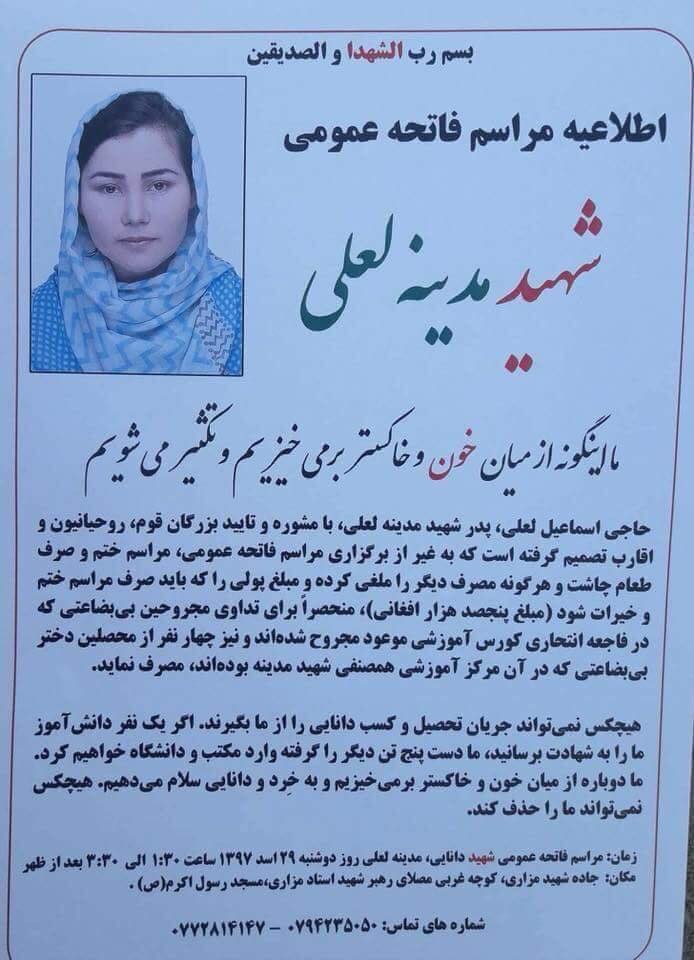 بسم رب الشهدا و الصدیقین
اطلاعیه مراسم فاتحه عمومی
شهید مدینه لعلی
ما اینگونه از میان خون و خاکستر برمی خیزیم و تکثیر می شویم
حاجی اسماعیل لعلی، پدر شهید مدینه لعلی، با مشوره و تایید بزرگان قوم، روحیانیون و
اقارب تصمیم گرفته است که به غیر از برگزاری مراسم فاتحه عمومی، مراسم ختم و صرف
طعام چاشت و هرگونه مصرف دیگر را ملغی کرده و مبلغ پولی را که باید صرف مراسم ختم
و خیرات شود (مبلغ پنجصد هزار افغانی)، منحصراً برای تداوی مجروحین بی‌بضاعتی که
در فاجعه انتحاری کورس آموزشی موعود مجروح شده‌اند و نیز چهار نفر از محصلین دختر
بی‌بضاعتی که در آن مرکز آموزشی همصنفی شهید مدینه بوده‌اند، مصرف نماید.
هیچکس نمی‌تواند جریان تحصیل و کسب دانایی را از ما بگیرند. اگر یک نفر دانش‌آموز
ما را به شهادت برسانید، ما دست پنج تن دیگر را گرفته وارد مکتب و دانشگاه خواهیم کرد.
ما دوباره از میان خون و خاکستر برمی‌خیزیم و به خِرد و دانایی سلام می‌دهیم. هیچکس
نمی‌تواند ما را حذف کند.
زمان: مراسم فاتحه عمومی شهید دانایی، مدینه لعلی روز دوشنبه ۲۹ اسد ۱۳۹۷ ساعت ۱:۳۰ الی ۳:۳۰ بعد از ظهر
مکان: جاده شهید مزاری، کوچه غربی مصلای رهبر شهید استاد مزاری،مسجد رسول اکرم(ص) .
شماره های تماس: ۰۷۹۴۲۳۵۰۵۰ – ۰۷۷۲۸۱۴۱۴۷